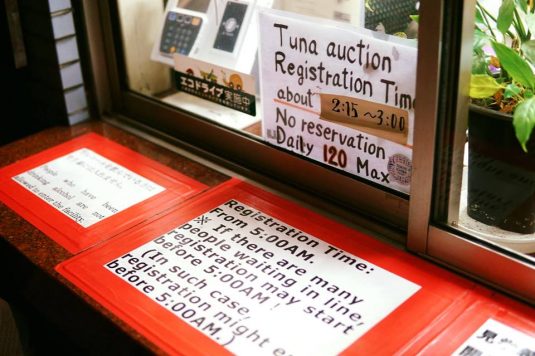 Tuna auction
Registration Time
about 2:15~3:00
No reservation
Daily 120 Max
エコドライブ実施中
People who have been
drinking alcohol are not
allowed to enter the facility.
Registration Time:
From 5:00AM.
※ If there are many
people waiting in line,
registration may start
before 5:00AM!
(In such case,
registration might e
before 5:00AM.)
見